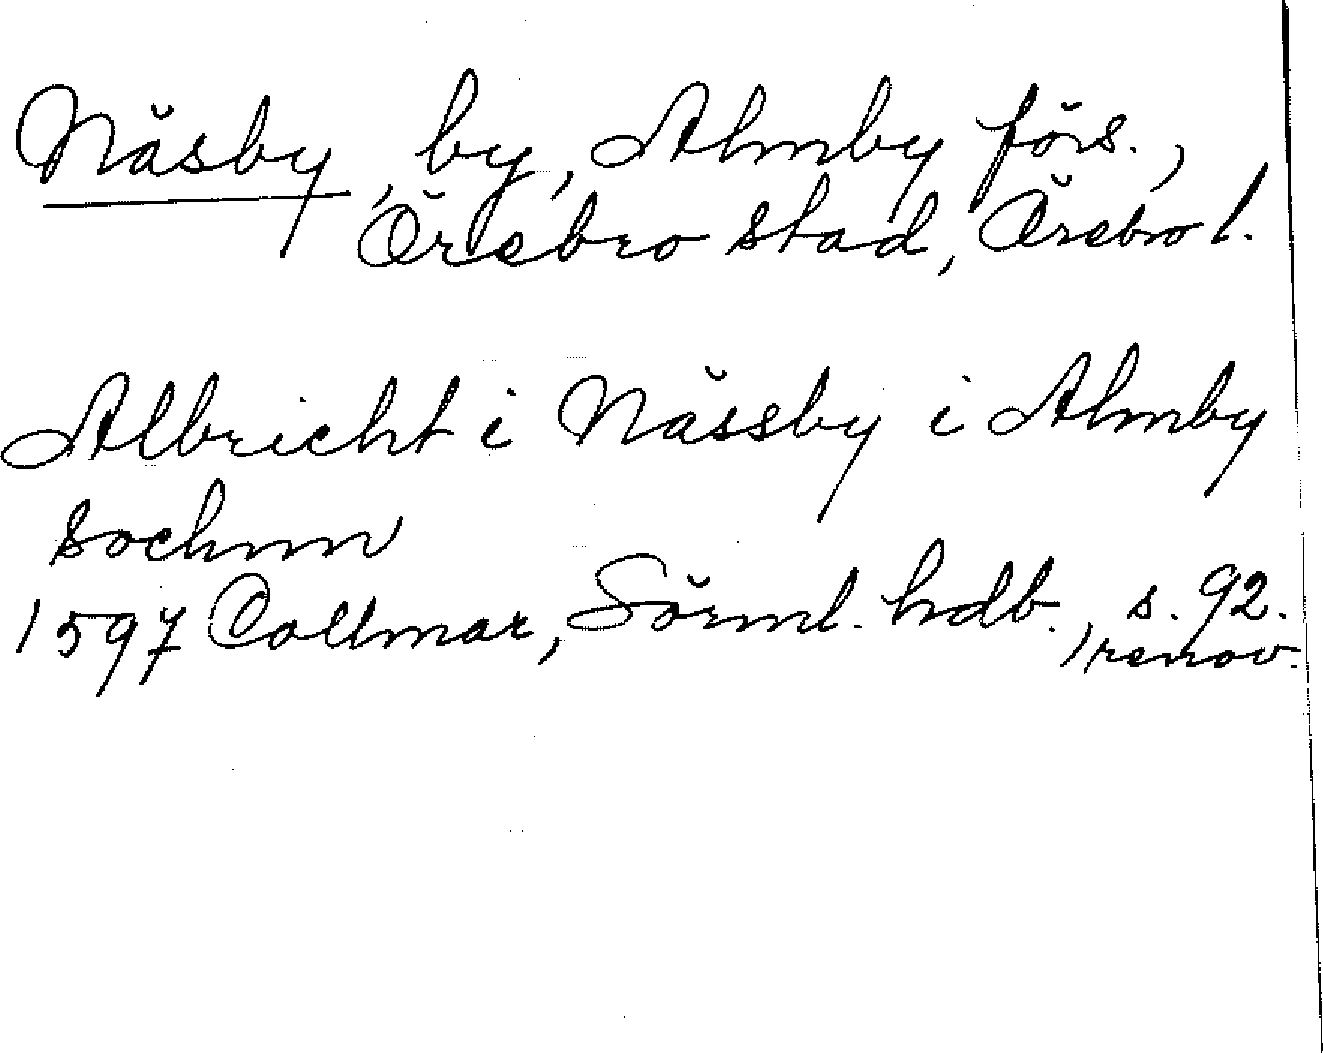 Näsby, by, Almby förs.,
Örebro stad, Örebro l.
Albricht i Nässby i Almby
sochnn
1597 Collmar, Sörml. hdb., s. 92.
, renov.